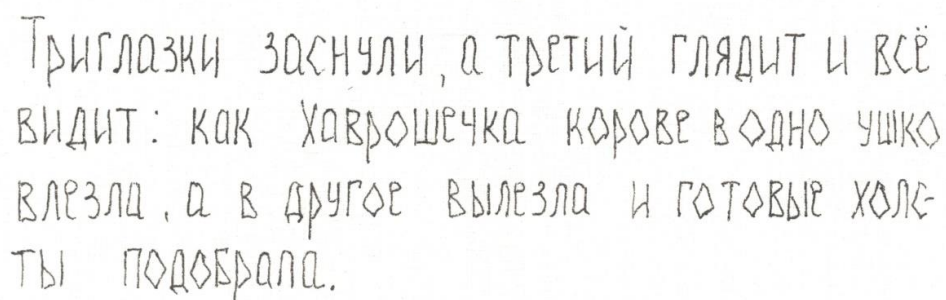 Триглазки заснули, а третий глядит и всё
видит: как Хаврошечка корове в одно ушко
влезла, а в другое вылезла и готовые холс-
ты подобрала.